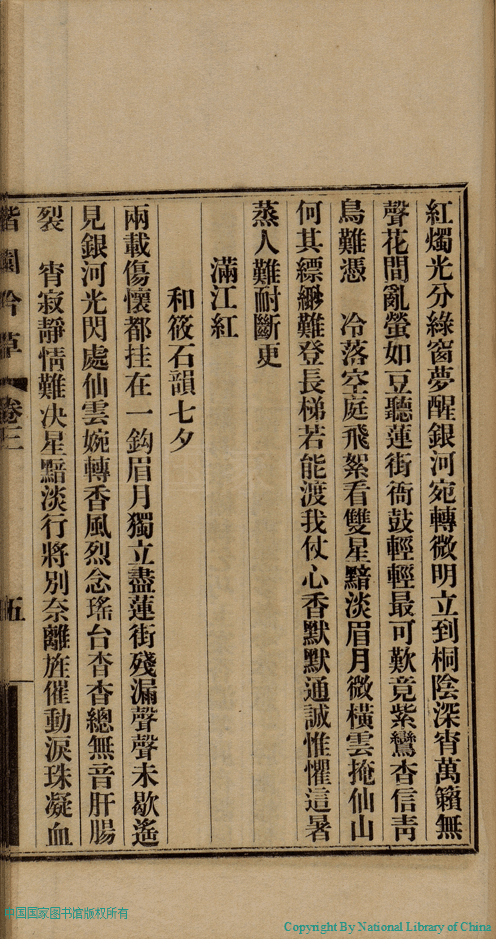 紅燭光分綠窗夢醒銀河宛轉微明立到桐陰深宵萬籟無
聲花間亂螢如豆聽蓮街衙鼓輕輕最可歎竟紫鸞杳信靑
鳥難憑　冷落空庭飛絮看雙星黯淡眉月微橫雲掩仙山
何其縹緲難登長梯若能渡我仗心香默默通誠惟懼這暑
蒸人難耐斷更
滿江紅
和筱石韻七夕
兩載傷懷都挂在一鈎眉月獨立盡蓮街殘漏聲聲未歇遙
見銀河光閃處仙雲婉轉香風烈念瑤台杳杳總無音肝腸
裂　宵寂靜情難決星黯淡行將別奈離旌催動淚珠凝血
園吟草
卷三
五
中国国家图书馆版权所有
Copyright By National Library of China